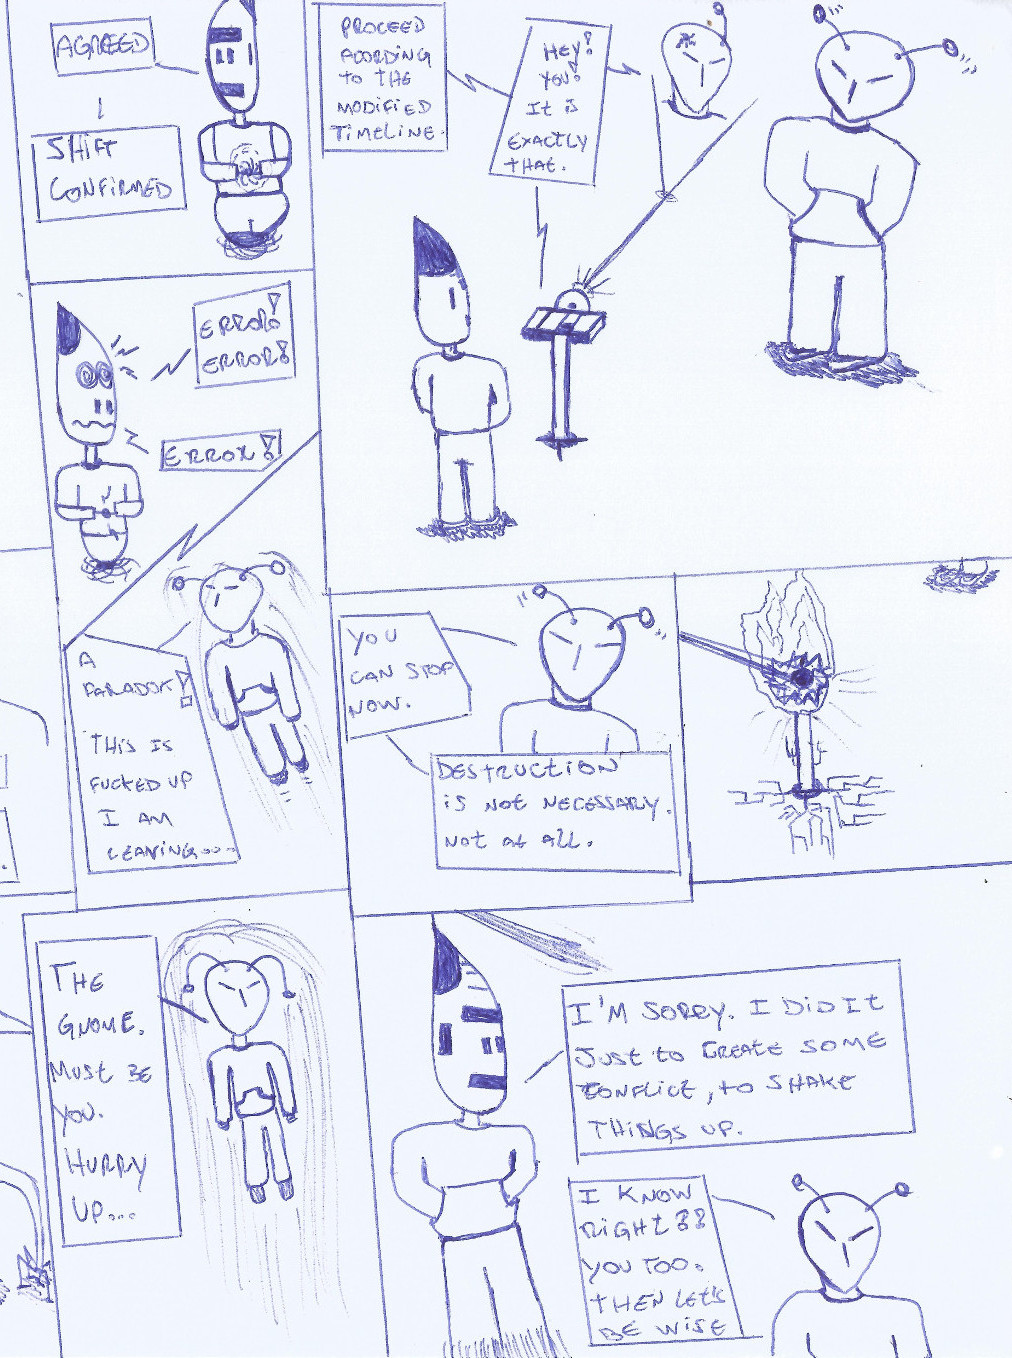 AGREED
SHIFT
CONFIRMED
PROCEED
ACORDING
TO THE
MODIFIED
TIMELINE.
HEY!
YOU!
IT IS
EXACTLY
THAT.
ERROR!
ERROR!
ERROR!
A
PARADOX!
THIS IS
FUCKED UP
I AM
LEAVING...
YOU
CAN STOP
NOW.
DESTRUCTION
IS NOT NECESSARY.
NOT AT ALL.
THE
GNOME.
MUST BE
YOU.
HURRY
UP...
I'M SORRY. I DID IT
JUST TO CREATE SOME
CONFLICT, TO SHAKE
THINGS UP.
I KNOW
RIGHT??
YOU TOO.
THEN LET'S
BE WISE